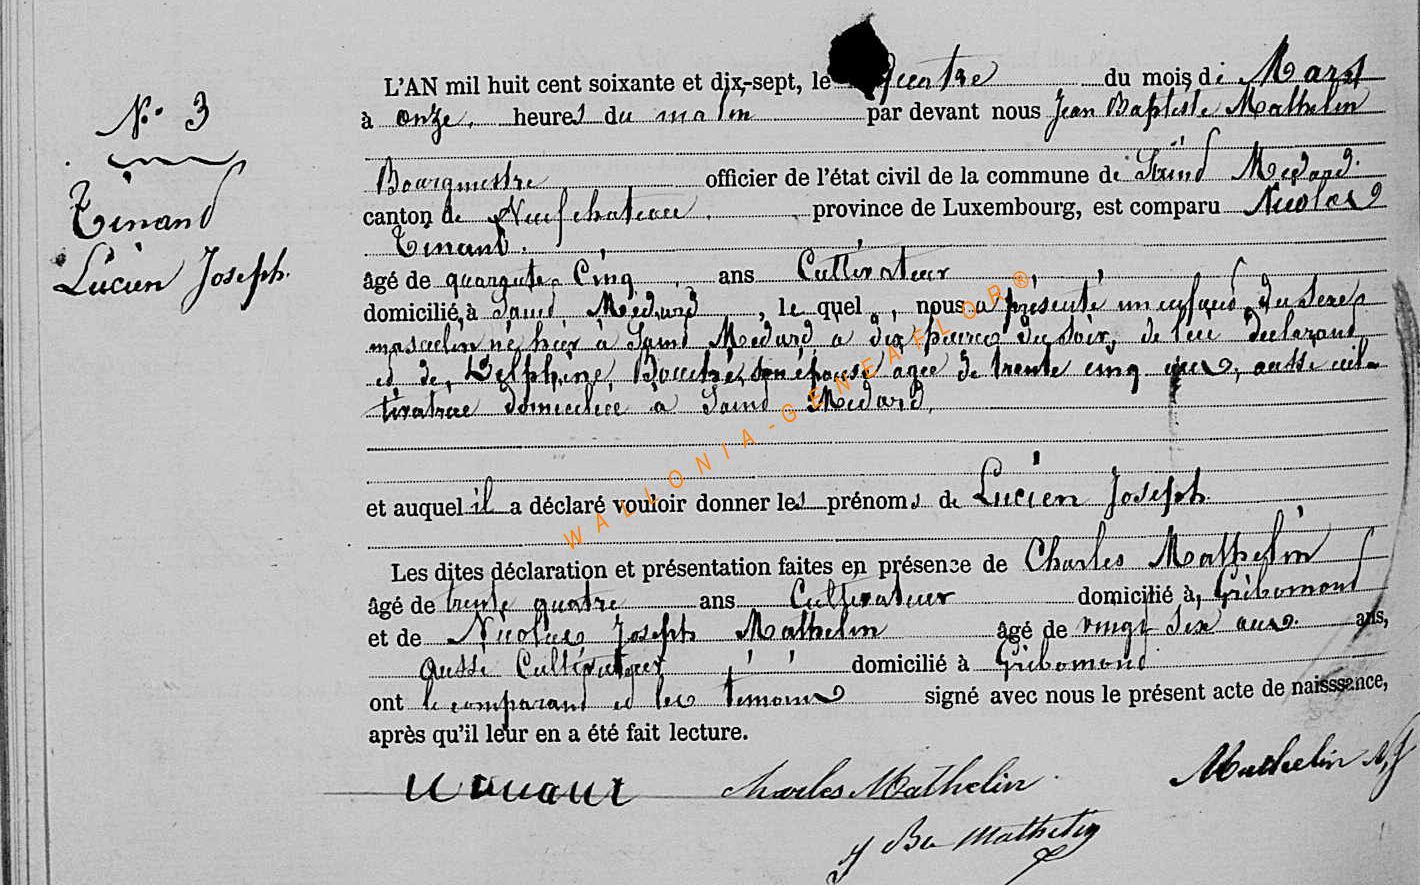 N.° 3
Tinant
Lucien Joseph.
L'AN mil huit cent soixante et dix-sept, le quatre du mois de Mars
à onze heures du matin par devant nous Jean Baptiste Mathelin
Bourgmestre officier de l'état civil de la commune de Saint Médard.
canton de Neufchateau province de Luxembourg, est comparu Nicolas
Tinant.
âgé de quarante Cinq ans Cultivateur
domicilié à Saint Médard, le quel, nous a présenté un enfant du sexe
masculin né hier à Saint Médard a dix heures du soir, de lui déclarant
et de Delphine son épouse agée de trente cinq ans, aussi cul-
tivatrice domiciliée à Saint Médard,
et auquel il a déclaré vouloir donner les prénoms de Lucien Joseph.
Les dites déclaration et présentation faites en présence de Charles Mathelin
âgé de trente quatre ans Cultivateur domicilié à, Gribomont
et de Nicolas Joseph Mathelin âgé de vingt six ans. ans,
aussi Cultivateur domicilié à Gribomont
ont le comparant et les témoins signé avec nous le présent acte de naisssance,
après qu'il leur en a été fait lecture.
Charles Mathelin Mathelin N. J
J Bte Mathelin
WALLONIA-GENEAFLOR®